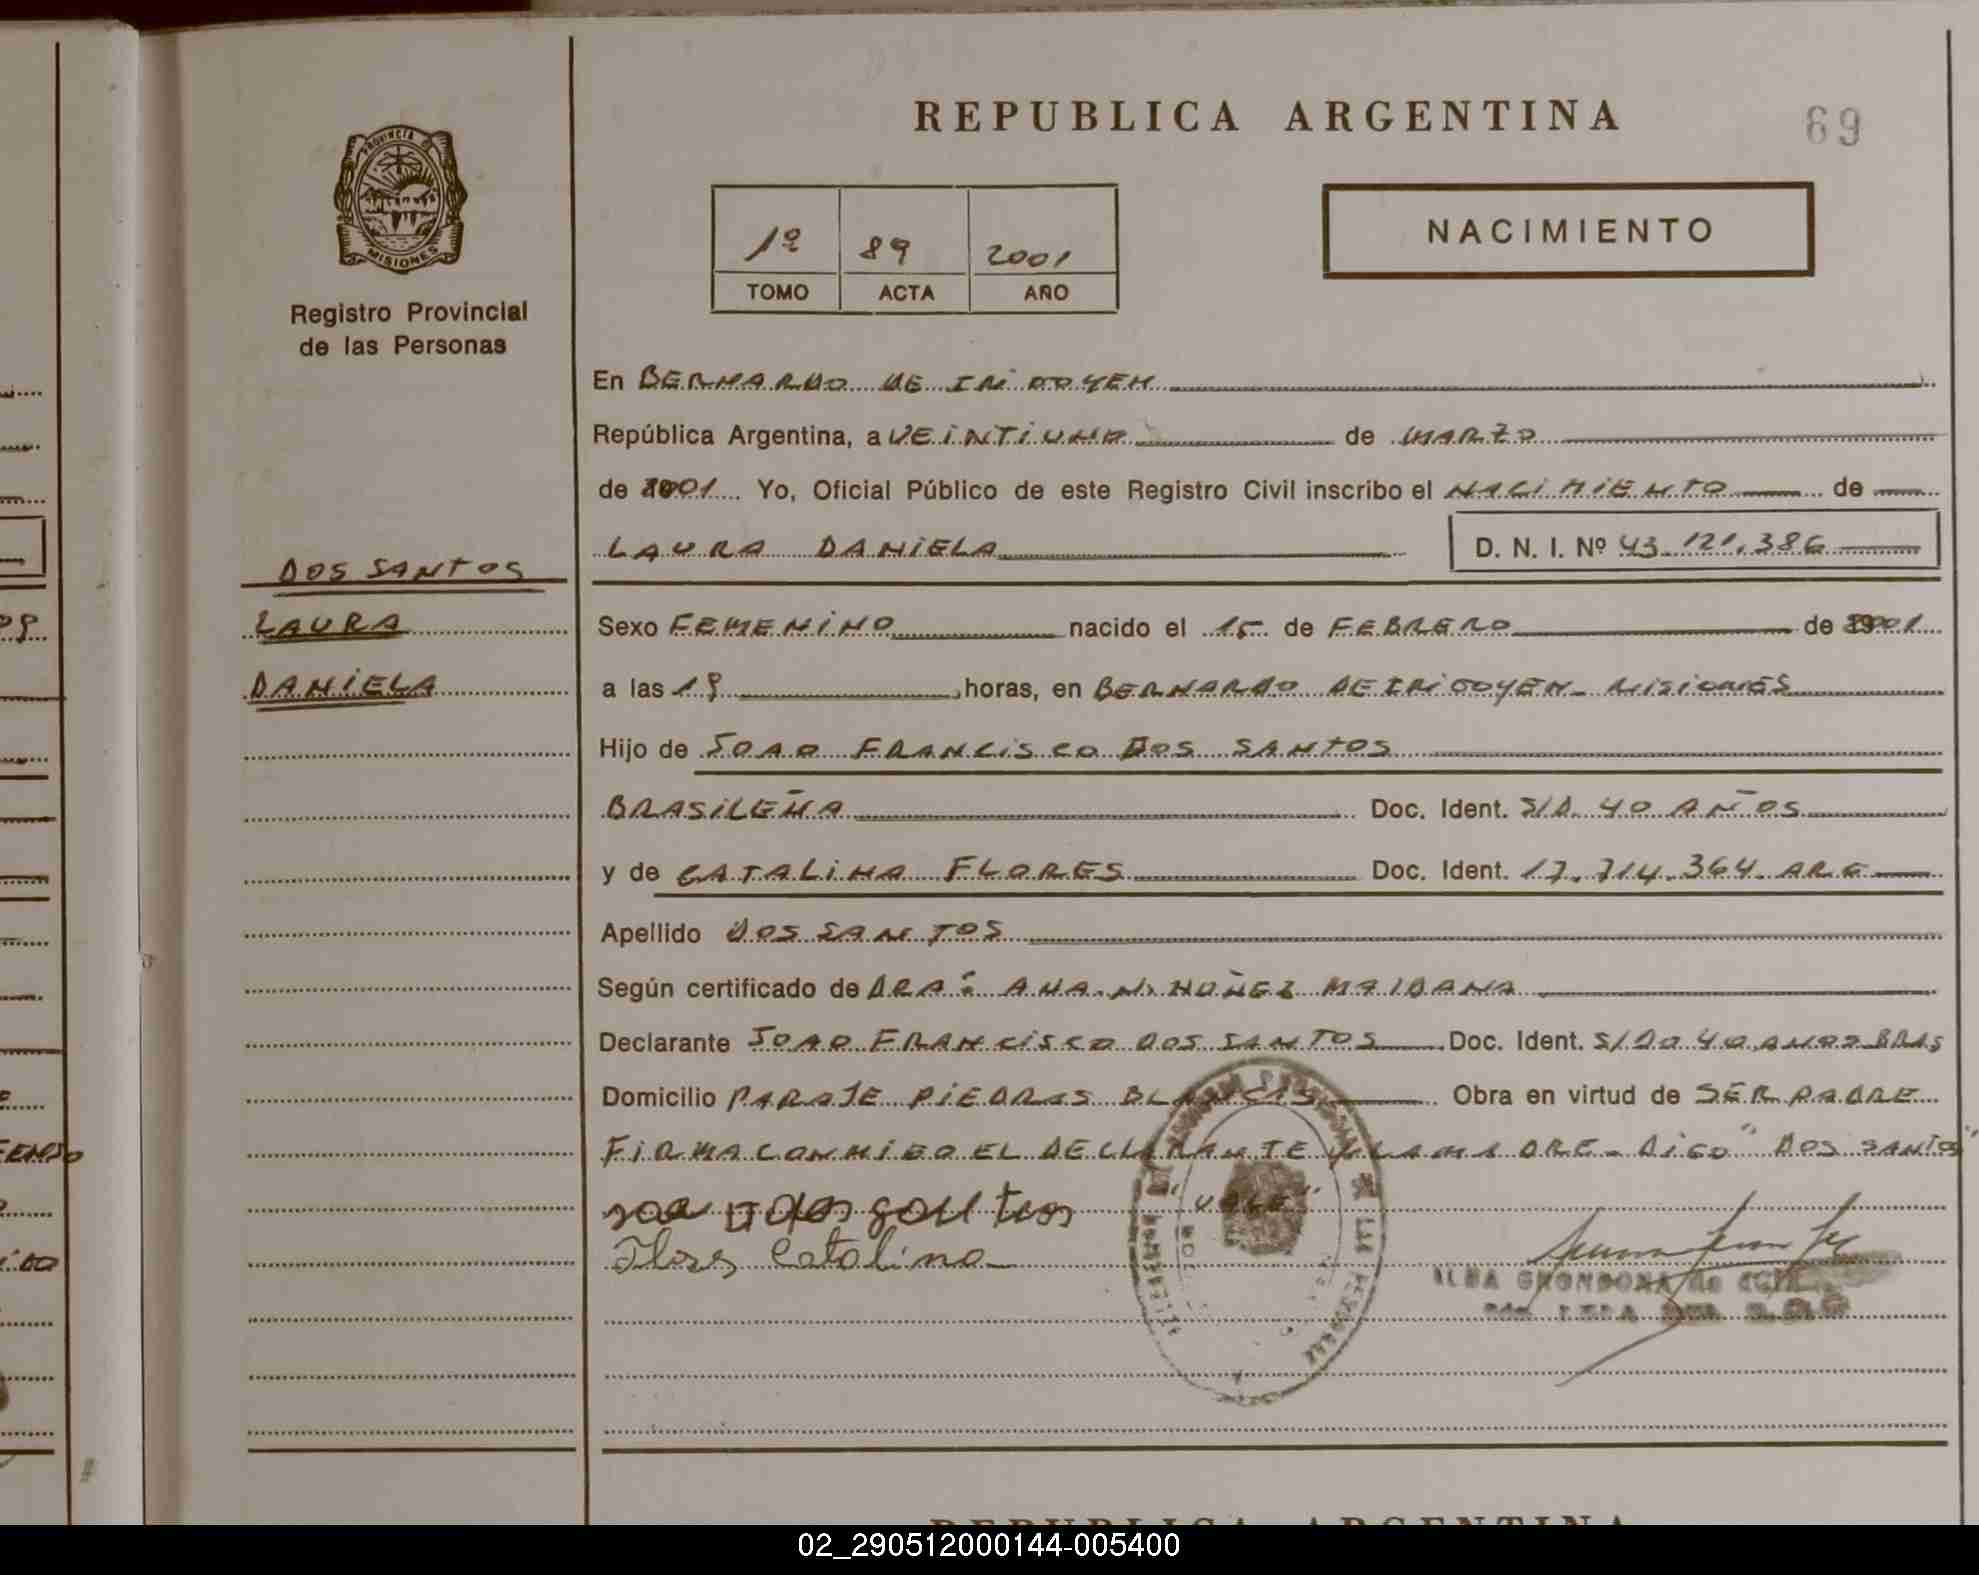 REPUBLICA ARGENTINA
69
PROVINCIA DE
MISIONES
Registro Provincial
de las Personas
1º 89 2001
TOMO ACTA AÑO
NACIMIENTO
En BERNARDO DE IRIGOYEN
República Argentina, a VEINTIUNO de MARZO
de 2001 Yo, Oficial Público de este Registro Civil inscribo el NACIMIENTO de
LAURA DANIELA D. N. I. Nº 43.121.386
DOS SANTOS
LAURA
DANIELA
Sexo FEMENINO nacido el 15 de FEBRERO de 2001
a las 19 horas, en BERNARDO DE IRIGOYEN - MISIONES
Hijo de JOAO FRANCISCO DOS SANTOS
BRASILEÑA Doc. Ident. S/D. 40 AÑOS
y de CATALINA FLORES Doc. Ident. 17.714.364. ARG
Apellido DOS SANTOS
Según certificado de DRA: ANA. N. NUÑEZ MAIDANA
Declarante JOAO FRANCISCO DOS SANTOS Doc. Ident. S/DO 40 AÑOS BRAS
Domicilio PARAJE PIEDRAS BLANCAS Obra en virtud de SER PADRE
FIRMA CONMIGO EL DECLARANTE Y LA MADRE - DIGO "DOS SANTOS"
"VALE"
Flores Catalina
REPUBLICA ARGENTINA
02_290512000144-005400